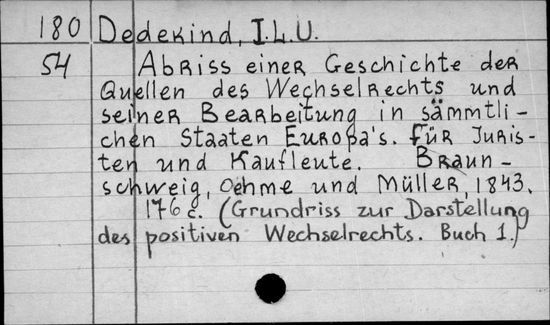 180 Dedekind, I.L.U.
54 Abriss einer Geschichte der
Quellen des Wechselrechts und
seiner Bearbeitung in sämmtli-
chen Staaten Europa's. für Juris-
ten und Kaufleute. Braun-
schweig, Oehme und Müller, 1843.
176 c. (Grundriss zur Darstellung
des positiven Wechselrechts. Buch 1.)